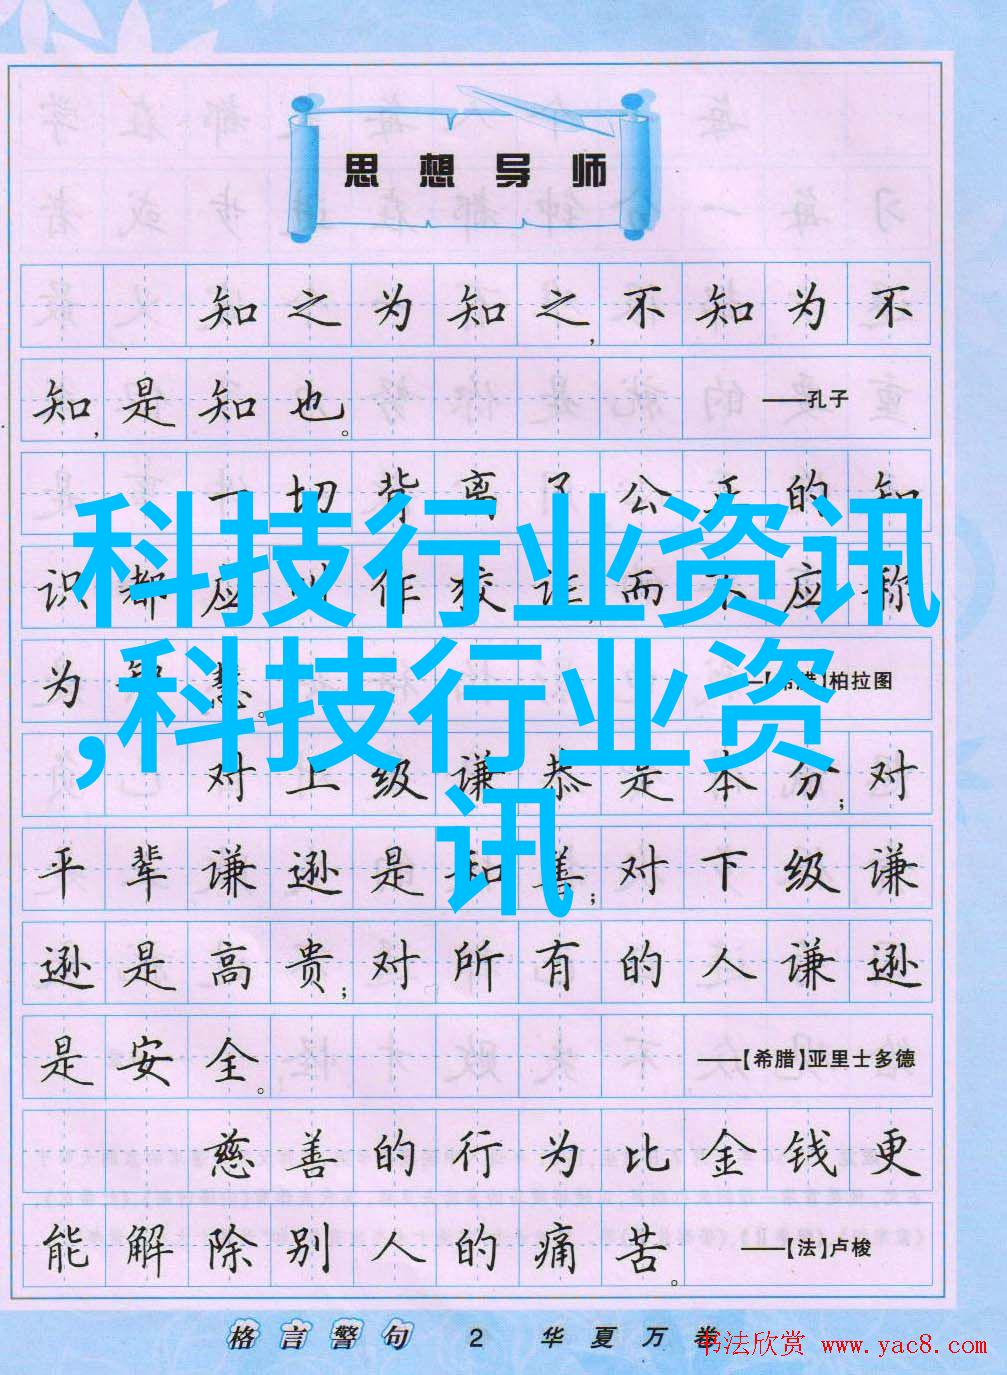 思想导师
知之为知之,不知为不
知,是知也。 ——孔子
一切背离了公正的知
识都应 作狡诈,而不应称
为智慧。 ——【希腊】柏拉图
科技行业资讯
,科技行业资
讯
对上级谦恭是本分;对
平辈谦逊是和善;对下级谦
逊是高贵;对所有的人谦逊
是安全。 ——【希腊】亚里士多德
慈善的行为比金钱更
能解除别人的痛苦。 ——【法】卢梭
格言警句 2 华夏万卷
书法欣赏 www.yac8.com